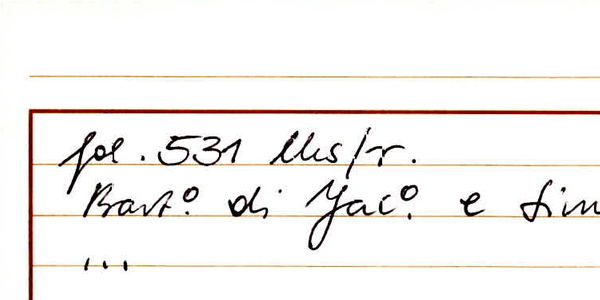 fol. 531 lks/r.
Bart.º di Jac.º e
...